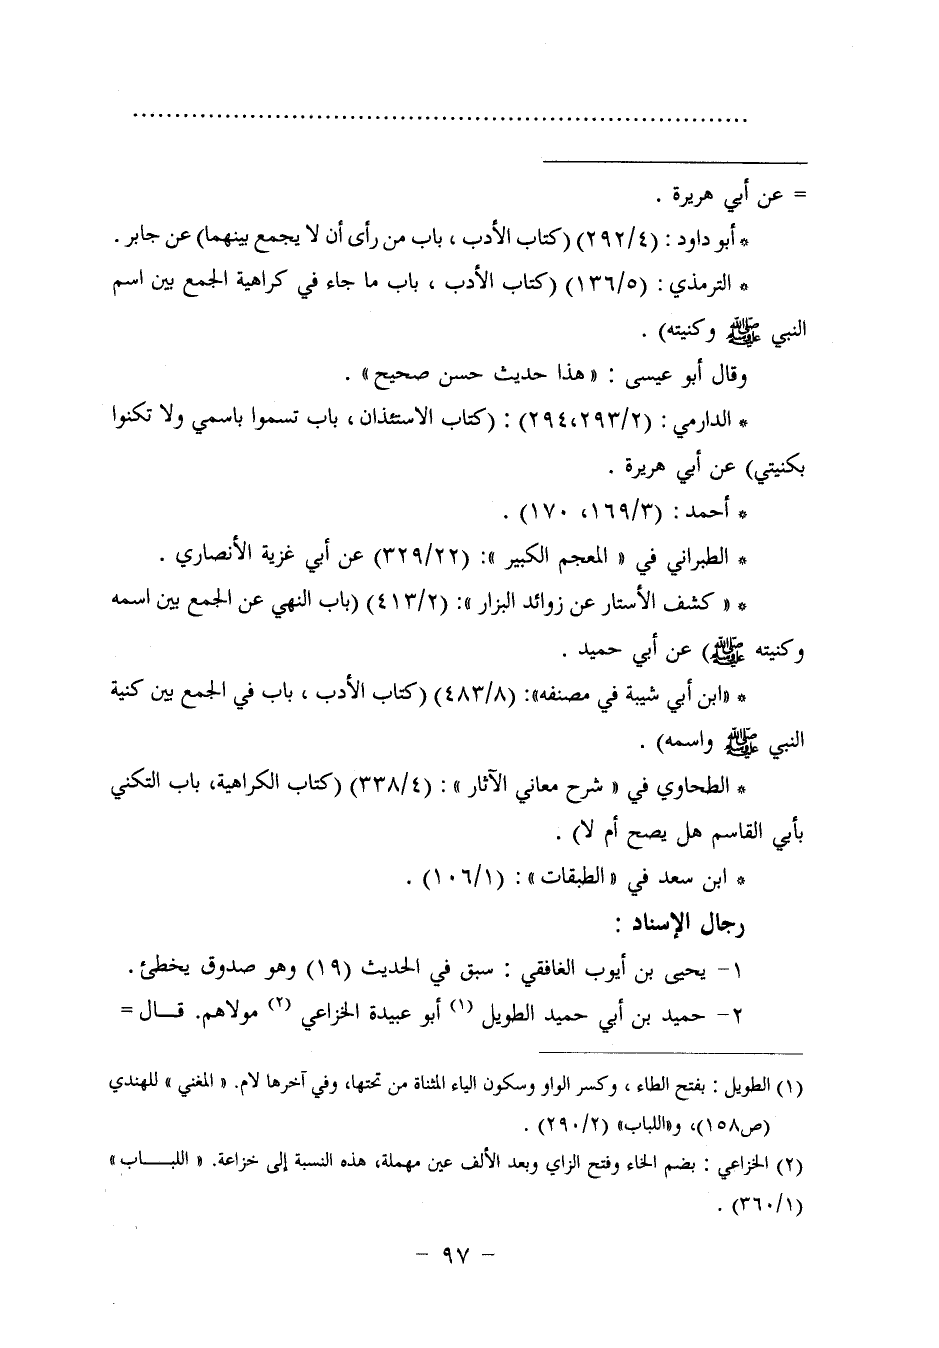 ........................................................................
= عن أبي هريرة .
* أبو داود : (٢٩٢/٤) (كتاب الأدب ، باب من رأى أن لا يجمع بينهما) عن جابر .
* الترمذي : (١٣٦/٥) (كتاب الأدب ، باب ما جاء في كراهية الجمع بين اسم
النبي ﷺ وكنيته) .
وقال أبو عيسى : «هذا حديث حسن صحيح» .
* الدارمي : (٢٩٤،٢٩٣/٢) : (كتاب الاستئذان ، باب تسموا باسمي ولا تكنوا
بكنيتي) عن أبي هريرة .
* أحمد : (١٦٩/٣، ١٧٠) .
* الطبراني في « المعجم الكبير »: (٣٢٩/٢٢) عن أبي غزية الأنصاري .
* « كشف الأستار عن زوائد البزار »: (٤١٣/٢) (باب النهي عن الجمع بين اسمه
وكنيته ﷺ) عن أبي حميد .
* «ابن أبي شيبة في مصنفه»: (٤٨٣/٨) (كتاب الأدب ، باب في الجمع بين كنية
النبي ﷺ واسمه) .
* الطحاوي في « شرح معاني الآثار » : (٣٣٨/٤) (كتاب الكراهية، باب التكني
بأبي القاسم هل يصح أم لا) .
* ابن سعد في «الطبقات» : (١٠٦/١) .
رجال الإسناد :
١- يحيى بن أيوب الغافقي : سبق في الحديث (١٩) وهو صدوق يخطئ.
٢- حميد بن أبي حميد الطويل (١) أبو عبيدة الخزاعي (٢) مولاهم. قـــال =
(١) الطويل : بفتح الطاء ، وكسر الواو وسكون الياء المثناة من تحتها، وفي آخرها لام. « المغني » للهندي
(ص١٥٨)، و«اللباب» (٢٩٠/٢) .
(٢) الخزاعي : بضم الخاء وفتح الزاي وبعد الألف عين مهملة، هذه النسبة إلى خزاعة. « اللبـــاب»
(٣٦٠/١) .
- ٩٧ -